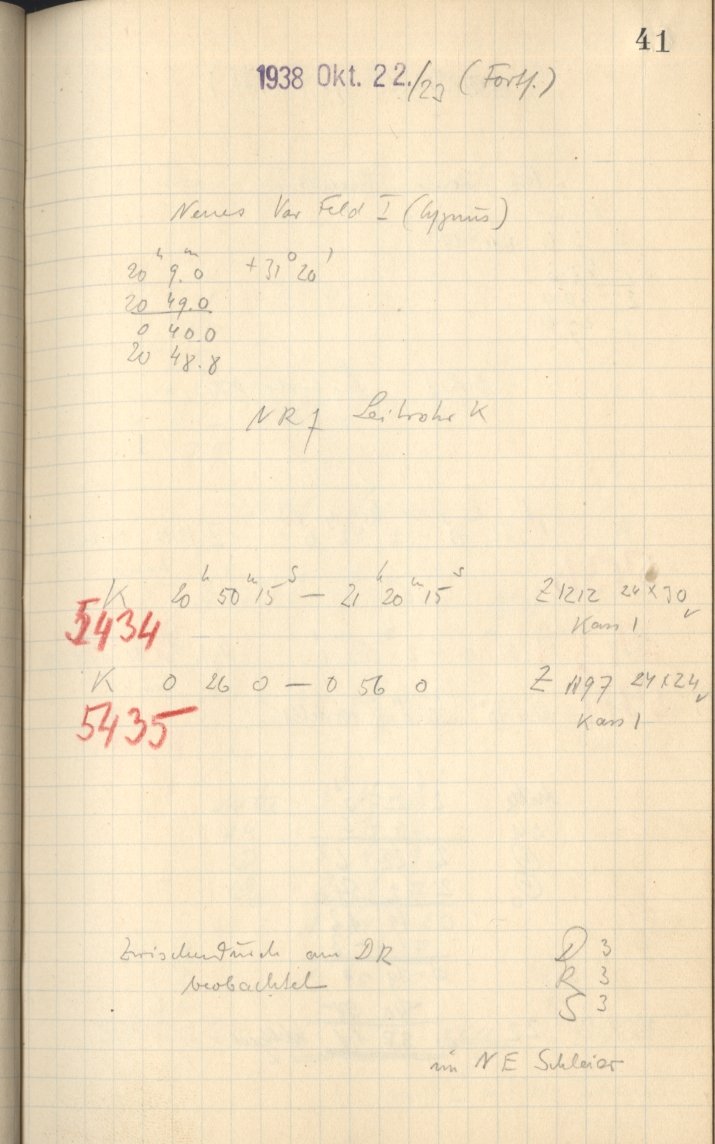 41
1938 Okt. 22./23 (Fortf.)
Neues Var Feld I (Cygnus)
20ʰ 9.ᵐ0 +31° 20'
20 49.0
0 40 0
20 48.8
NR 7 Leitrohr K
K 20ʰ 50ᵐ 15ˢ — 21ʰ 20ᵐ 15ˢ Z 1212 24 x 30
5434 Kass 1
K 0 26 0 — 0 56 0 Z 1197 24 x 24
5435 Kass 1
Zwischendurch am DR D 3
beobachtet R 3
S 3
im NE Schleier